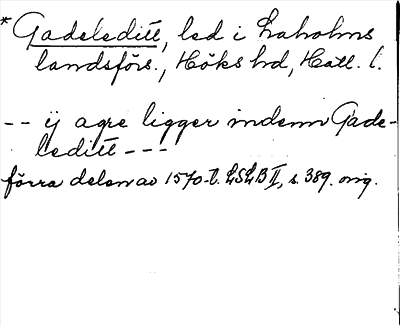 * Gadeleditt, led i Laholms
landsförs., Höks hd, Hall. l.
-- ij agre ligger indenn Gade-
leditt ---
förra delen av 1570-t. LSLB II, s. 389. orig.